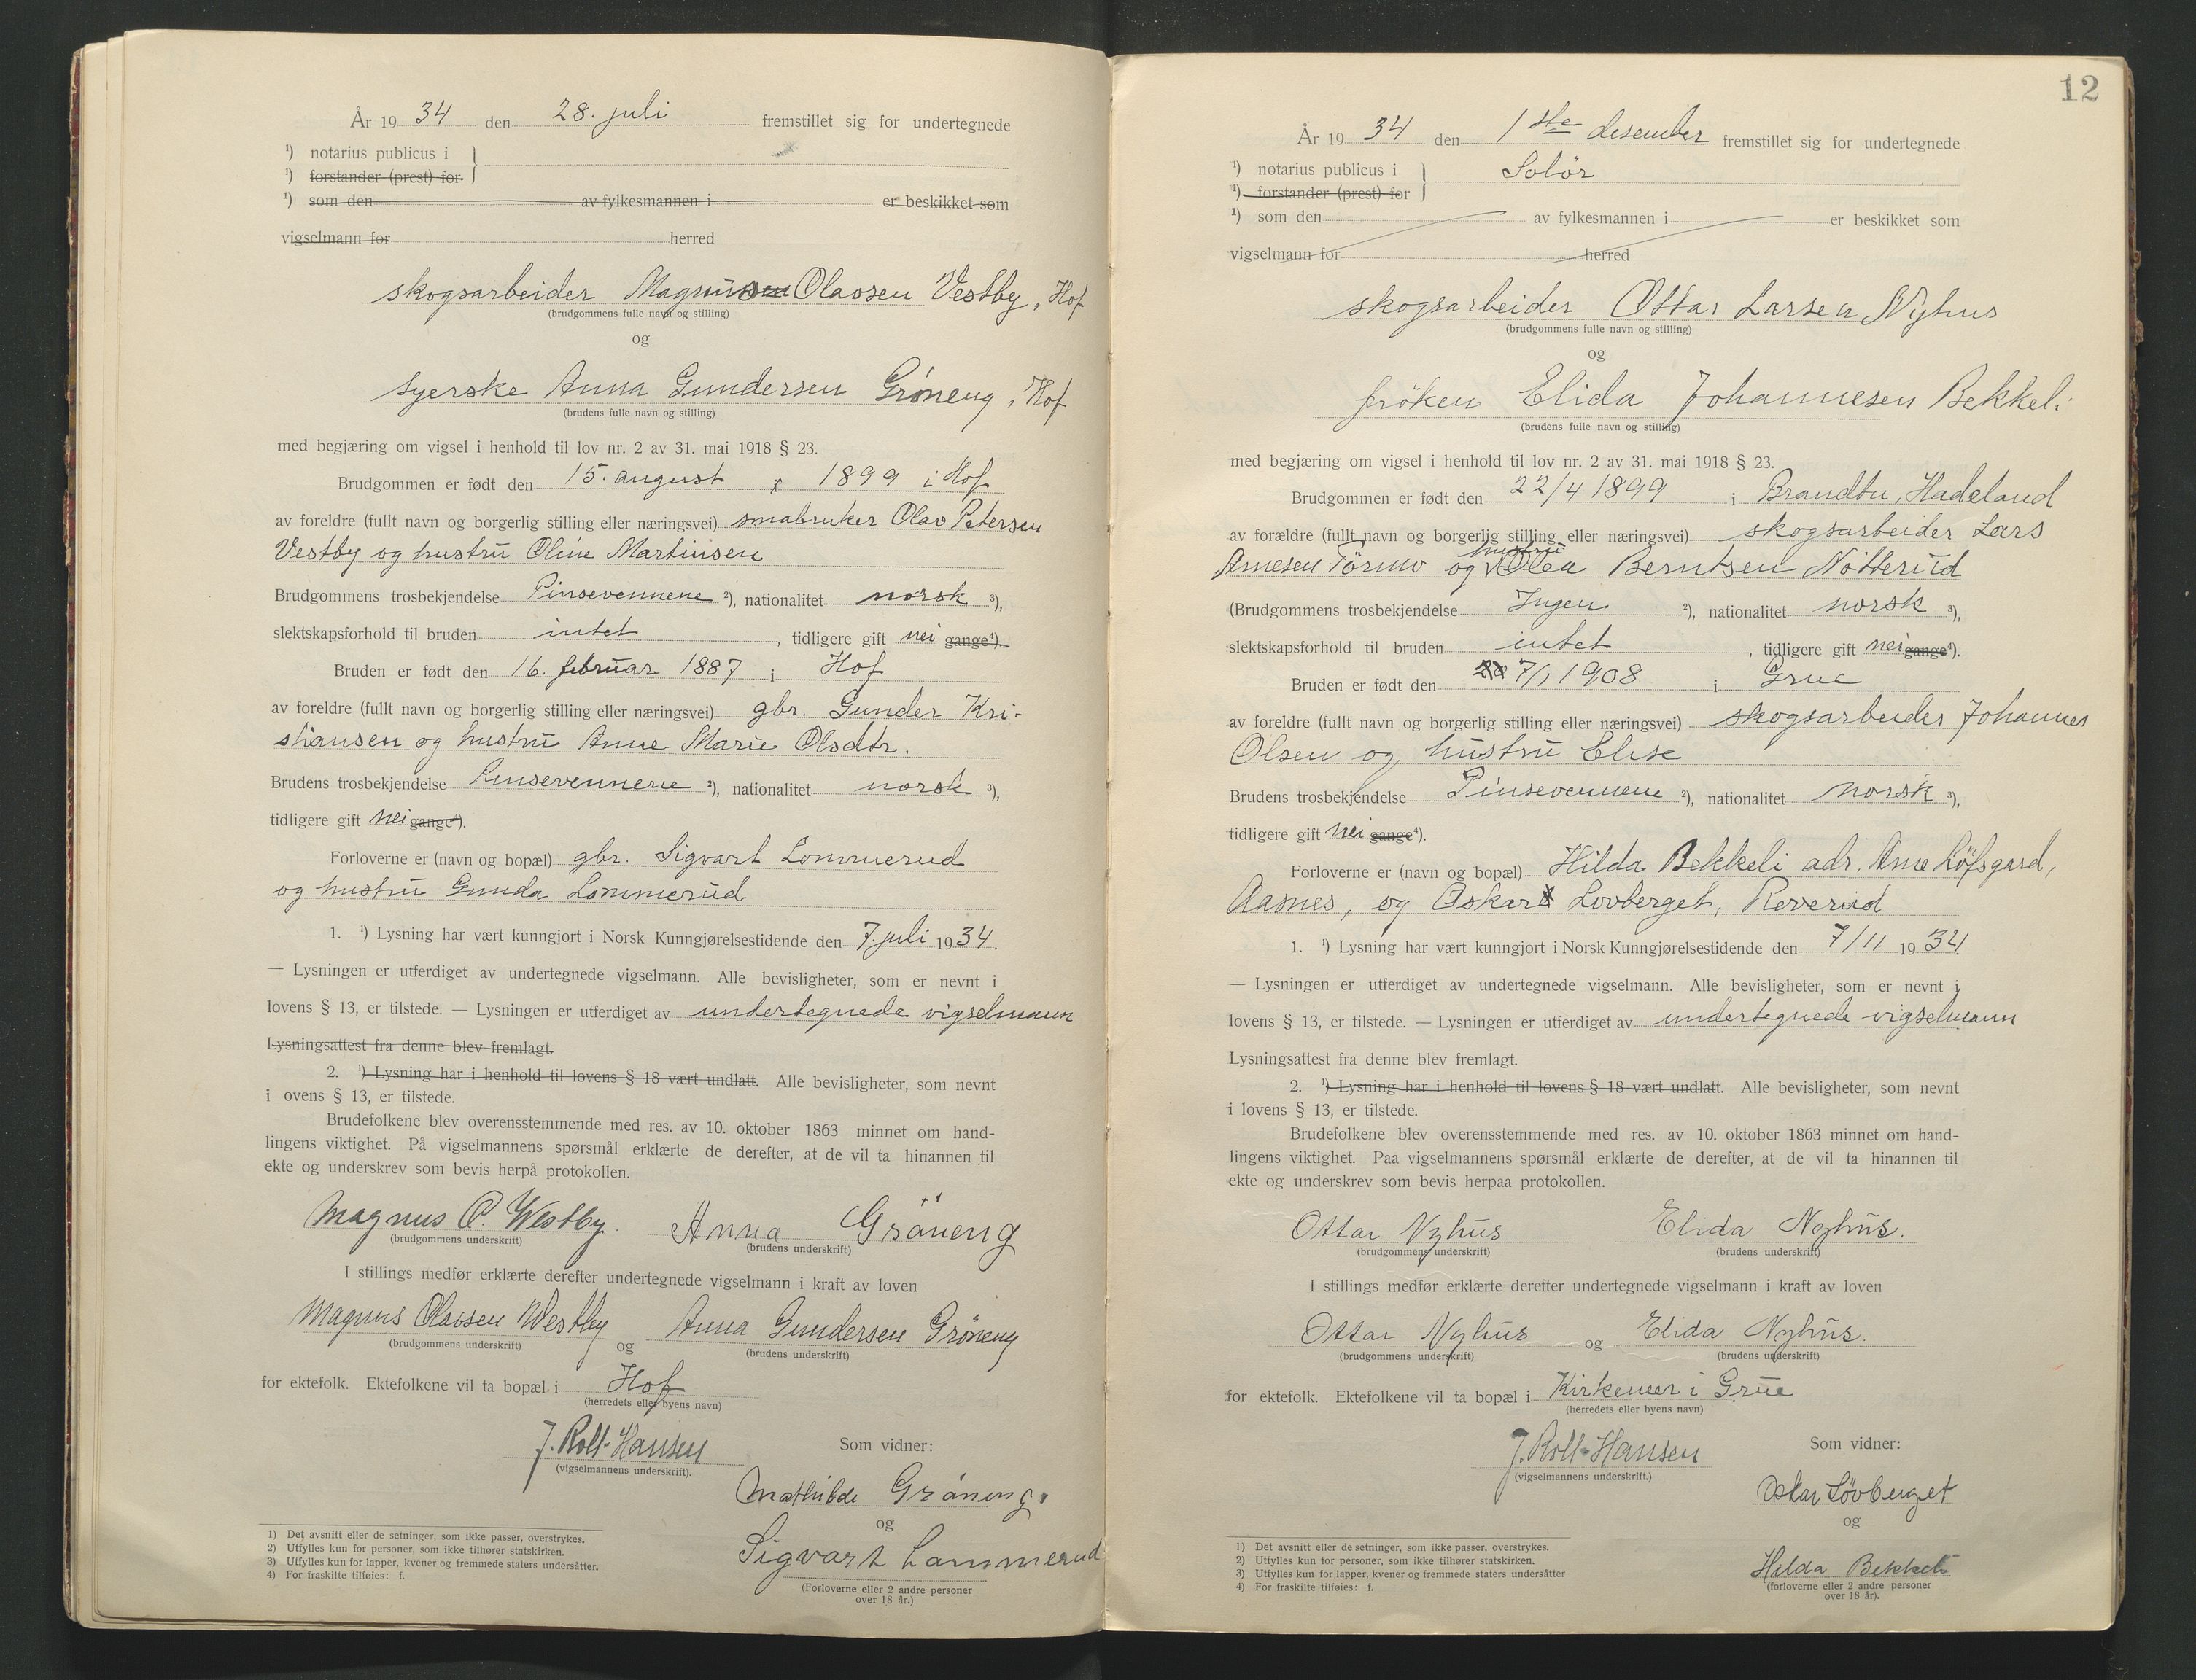 År 19 34 den 28. juli fremstillet sig for undertegnede
¹) notarius publicus i
¹) forstander (prest) for
¹) som den av fylkesmannen i er beskikket som
vigselmann for herred
skogsarbeider Magnus Olavsen Vestby, Hof
(brudgommens fulle navn og stilling)
og
syerske Anna Gundersen Grøneng, Hof
(brudens fulle navn og stilling)
med begjæring om vigsel i henhold til lov nr. 2 av 31. mai 1918 § 23.
Brudgommen er født den 15. august 1899 i Hof
av foreldre (fullt navn og borgerlig stilling eller næringsvei) småbruker Olav Petersen
Vestby og hustru Oline Martinsen
Brudgommens trosbekjendelse Pinsevennene ²), nationalitet norsk ³),
slektskapsforhold til bruden intet, tidligere gift nei gange⁴).
Bruden er født den 16. februar 1887 i Hof
av foreldre (fullt navn og borgerlig stilling eller næringsvei) gbr. Gunder Kri-
stiansen og hustru Anne Marie Olsdtr.
Brudens trosbekjendelse Pinsevennene ²), nationalitet norsk ³),
tidligere gift nei gange⁴).
Forloverne er (navn og bopæl) gbr. Sigvart Lommerud
og hustru Gunda Lommerud
1. ¹) Lysning har vært kunngjort i Norsk Kunngjørelsestidende den 7. juli 1934.
— Lysningen er utferdiget av undertegnede vigselmann. Alle bevisligheter, som er nevnt i
lovens § 13, er tilstede. — Lysningen er utferdiget av undertegnede vigselmann
Lysningsattest fra denne blev fremlagt.
2. ¹) Lysning har i henhold til lovens § 18 vært undlatt. Alle bevisligheter, som nevnt
i ovens § 13, er tilstede.
Brudefolkene blev overensstemmende med res. av 10. oktober 1863 minnet om hand-
lingens viktighet. På vigselmannens spørsmål erklærte de derefter, at de vil ta hinannen til
ekte og underskrev som bevis herpå protokollen.
Magnus O. Westby. Anna Gröneng
(brudgommens underskrift) (brudens underskrift)
I stillings medfør erklærte derefter undertegnede vigselmann i kraft av loven
Magnus Olavsen Westby og Anna Gundersen Grøneng
(brudgommens underskrift) (brudens underskrift)
for ektefolk. Ektefolkene vil ta bopæl i Hof
(herredets eller byens navn)
J. Roll-Hansen
(vigselmannens underskrift).
Som vidner:
Mathilde Gröneng
og
Sigvart Lommerud
(Forloverne eller 2 andre personer
over 18 år.)
1) Det avsnitt eller de setninger, som ikke passer, overstrykes.
2) Utfylles kun for personer, som ikke tilhører statskirken.
3) Utfylles kun for lapper, kvener og fremmede staters undersåtter.
4) For fraskilte tilføies: f.
12
År 19 34 den 1ste desember fremstillet sig for undertegnede
¹) notarius publicus i Solør
¹) forstander (prest) for
¹) som den av fylkesmannen i er beskikket som
vigselmann for herred
skogsarbeider Ottar Larsen Nyhus
(brudgommens fulle navn og stilling)
og
frøken Elida Johannesen Bekkeli
(brudens fulle navn og stilling)
med begjæring om vigsel i henhold til lov nr. 2 av 31. mai 1918 § 23.
Brudgommen er født den 22/4 1899 i Brandbu, Hadeland
av forældre (fullt navn og borgerlig stilling eller næringsvei) skogsarbeider Lars
Arnesen og hustru Olea Berntsen Nötterud
(Brudgommens trosbekjendelse Ingen ²), nationalitet norsk ³),
slektskapsforhold til bruden intet, tidligere gift nei gange⁴).
Bruden er født den 7/1 1908 i Grue
av foreldre (fullt navn og borgerlig stilling eller næringsvei) skogsarbeider Johannes
Olsen og hustru Elise
Brudens trosbekjendelse Pinsevennene ²), nationalitet norsk ³),
tidligere gift nei gange⁴).
Forloverne er (navn og bopæl) Hilda Bekkeli adr. Arne Löfsgard,
Aasnes, og Oskar Lovberget, Reverud
1. ¹) Lysning har vært kunngjort i Norsk Kunngjørelsestidende den 7/11 1934.
— Lysningen er utferdiget av undertegnede vigselmann. Alle bevisligheter, som er nevnt i
lovens § 13, er tilstede. — Lysningen er utferdiget av undertegnede vigselmann
Lysningsattest fra denne blev fremlagt.
2. ¹) Lysning har i henhold til lovens § 18 vært undlatt. Alle bevisligheter, som nevnt
i lovens § 13, er tilstede.
Brudefolkene blev overensstemmende med res. av 10. oktober 1863 minnet om hand-
lingens viktighet. Paa vigselmannens spørsmål erklærte de derefter, at de vil ta hinannen til
ekte og underskrev som bevis herpaa protokollen.
Ottar Nyhus Elida Nyhus.
(brudgommens underskrift) (brudens underskrift)
I stillings medfør erklærte derefter undertegnede vigselmann i kraft av loven
Ottar Nyhus og Elida Nyhus.
(brudgommens underskrift) (brudens underskrift)
for ektefolk. Ektefolkene vil ta bopæl i Kirkenær i Grue
(herredets eller byens navn)
J. Roll-Hansen
(vigselmannens underskrift.)
Som vidner:
Oskar Lövberget
og
Hilda Bekkeli
(forloverne eller 2 andre personer
over 18 år).
1) Det avsnitt eller de setninger, som ikke passer, overstrykes.
2) Utfylles kun for personer, som ikke tilhører statskirken.
3) Utfylles kun for lapper, kvener og fremmede staters undersåtter
4) For fraskilte tilføies: f.